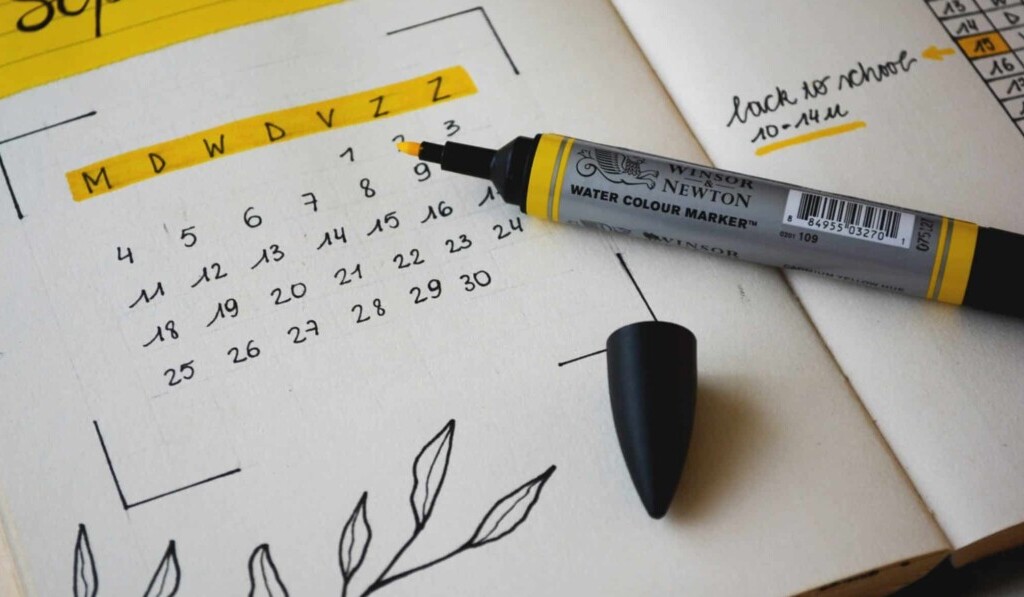 M D W D V Z Z
1 2 3
4 5 6 7 8 9
11 12 13 14 15 16 17
18 19 20 21 22 23 24
25 26 27 28 29 30
WINSOR
&
NEWTON
WATER COLOUR MARKER™
8 84955 03270 1
0201 109
075127
WINSOR
back to school
10-14u
13
14
15
16